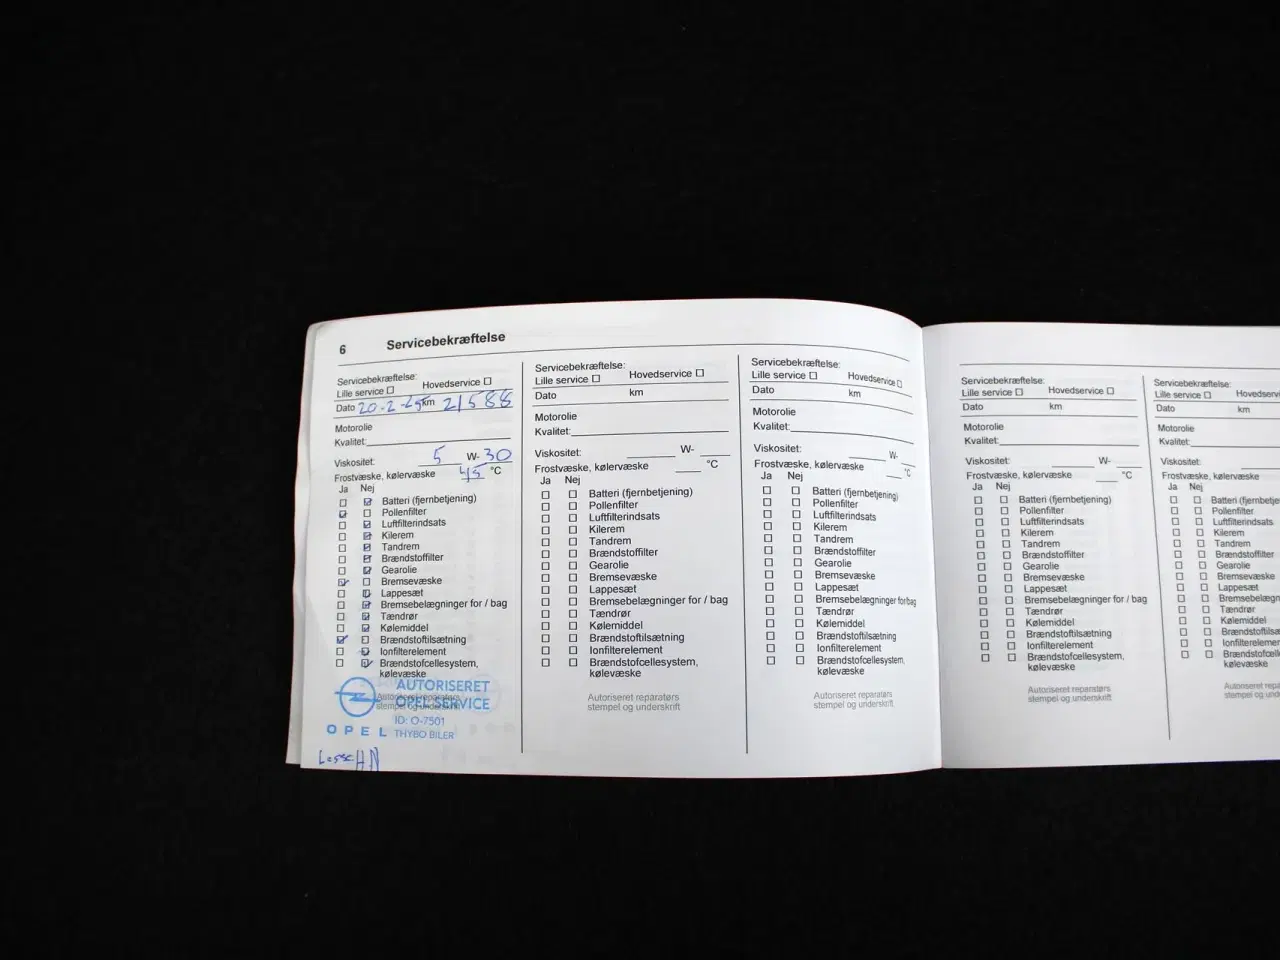 6 Servicebekræftelse
Servicebekræftelse:
Lille service ☐ Hovedservice ☐
Dato 20-2-25 km 21588
Motorolie
Kvalitet:
Viskositet: 5 W- 30
Frostvæske, kølervæske 45 °C
Ja Nej
☐ ☑ Batteri (fjernbetjening)
☑ ☐ Pollenfilter
☐ ☑ Luftfilterindsats
☐ ☑ Kilerem
☐ ☑ Tandrem
☐ ☑ Brændstoffilter
☐ ☑ Gearolie
☑ ☐ Bremsevæske
☐ ☑ Lappesæt
☐ ☑ Bremsebelægninger for / bag
☐ ☑ Tændrør
☐ ☑ Kølemiddel
☑ ☐ Brændstoftilsætning
☐ ☑ Ionfilterelement
☐ ☑ Brændstofcellesystem,
kølevæske
Autoriseret reparatørs
stempel og underskrift
AUTORISERET
OPEL SERVICE
ID: O-7501
OPEL THYBO BILER
HN
Servicebekræftelse:
Lille service ☐ Hovedservice ☐
Dato km
Motorolie
Kvalitet:
Viskositet: W-
Frostvæske, kølervæske °C
Ja Nej
☐ ☐ Batteri (fjernbetjening)
☐ ☐ Pollenfilter
☐ ☐ Luftfilterindsats
☐ ☐ Kilerem
☐ ☐ Tandrem
☐ ☐ Brændstoffilter
☐ ☐ Gearolie
☐ ☐ Bremsevæske
☐ ☐ Lappesæt
☐ ☐ Bremsebelægninger for / bag
☐ ☐ Tændrør
☐ ☐ Kølemiddel
☐ ☐ Brændstoftilsætning
☐ ☐ Ionfilterelement
☐ ☐ Brændstofcellesystem,
kølevæske
Autoriseret reparatørs
stempel og underskrift
Servicebekræftelse:
Lille service ☐ Hovedservice ☐
Dato km
Motorolie
Kvalitet:
Viskositet: W-
Frostvæske, kølervæske °C
Ja Nej
☐ ☐ Batteri (fjernbetjening)
☐ ☐ Pollenfilter
☐ ☐ Luftfilterindsats
☐ ☐ Kilerem
☐ ☐ Tandrem
☐ ☐ Brændstoffilter
☐ ☐ Gearolie
☐ ☐ Bremsevæske
☐ ☐ Lappesæt
☐ ☐ Bremsebelægninger for/bag
☐ ☐ Tændrør
☐ ☐ Kølemiddel
☐ ☐ Brændstoftilsætning
☐ ☐ Ionfilterelement
☐ ☐ Brændstofcellesystem,
kølevæske
Autoriseret reparatørs
stempel og underskrift
Servicebekræftelse:
Lille service ☐ Hovedservice ☐
Dato km
Motorolie
Kvalitet:
Viskositet: W-
Frostvæske, kølervæske °C
Ja Nej
☐ ☐ Batteri (fjernbetjening)
☐ ☐ Pollenfilter
☐ ☐ Luftfilterindsats
☐ ☐ Kilerem
☐ ☐ Tandrem
☐ ☐ Brændstoffilter
☐ ☐ Gearolie
☐ ☐ Bremsevæske
☐ ☐ Lappesæt
☐ ☐ Bremsebelægninger for / bag
☐ ☐ Tændrør
☐ ☐ Kølemiddel
☐ ☐ Brændstoftilsætning
☐ ☐ Ionfilterelement
☐ ☐ Brændstofcellesystem,
kølevæske
Autoriseret reparatørs
stempel og underskrift
Servicebekræftelse:
Lille service ☐ Hovedservi
Dato km
Motorolie
Kvalitet:
Viskositet:
Frostvæske, kølervæske
Ja Nej
☐ ☐ Batteri (fjernbetje
☐ ☐ Pollenfilter
☐ ☐ Luftfilterindsats
☐ ☐ Kilerem
☐ ☐ Tandrem
☐ ☐ Brændstoffilter
☐ ☐ Gearolie
☐ ☐ Bremsevæske
☐ ☐ Lappesæt
☐ ☐ Bremsebelægn
☐ ☐ Tændrør
☐ ☐ Kølemiddel
☐ ☐ Brændstoftilsæ
☐ ☐ Ionfilterelemen
☐ ☐ Brændstofcelle
kølevæske
Autoriseret repara
stempel og unders